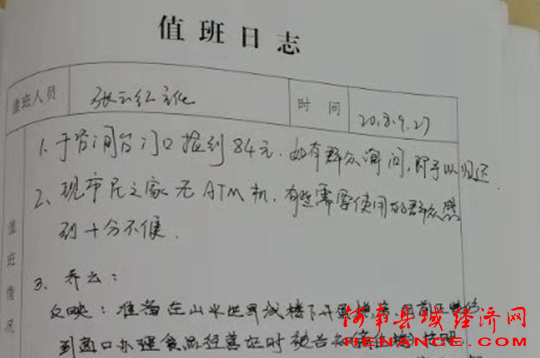 值班日志
值班人员 张云红主任 时间 2018.9.27
1. 于咨询台门口捡到84元,如有群众询问,即予以归还.
2、现市民之家无ATM机,有些需要使用的群众感
到十分不便.
值班情况
3. 乔云:
反映:准备在山水世界城楼下开
到窗口办理食品经营证时被告知
河南县域经济网
HENANCE.COM